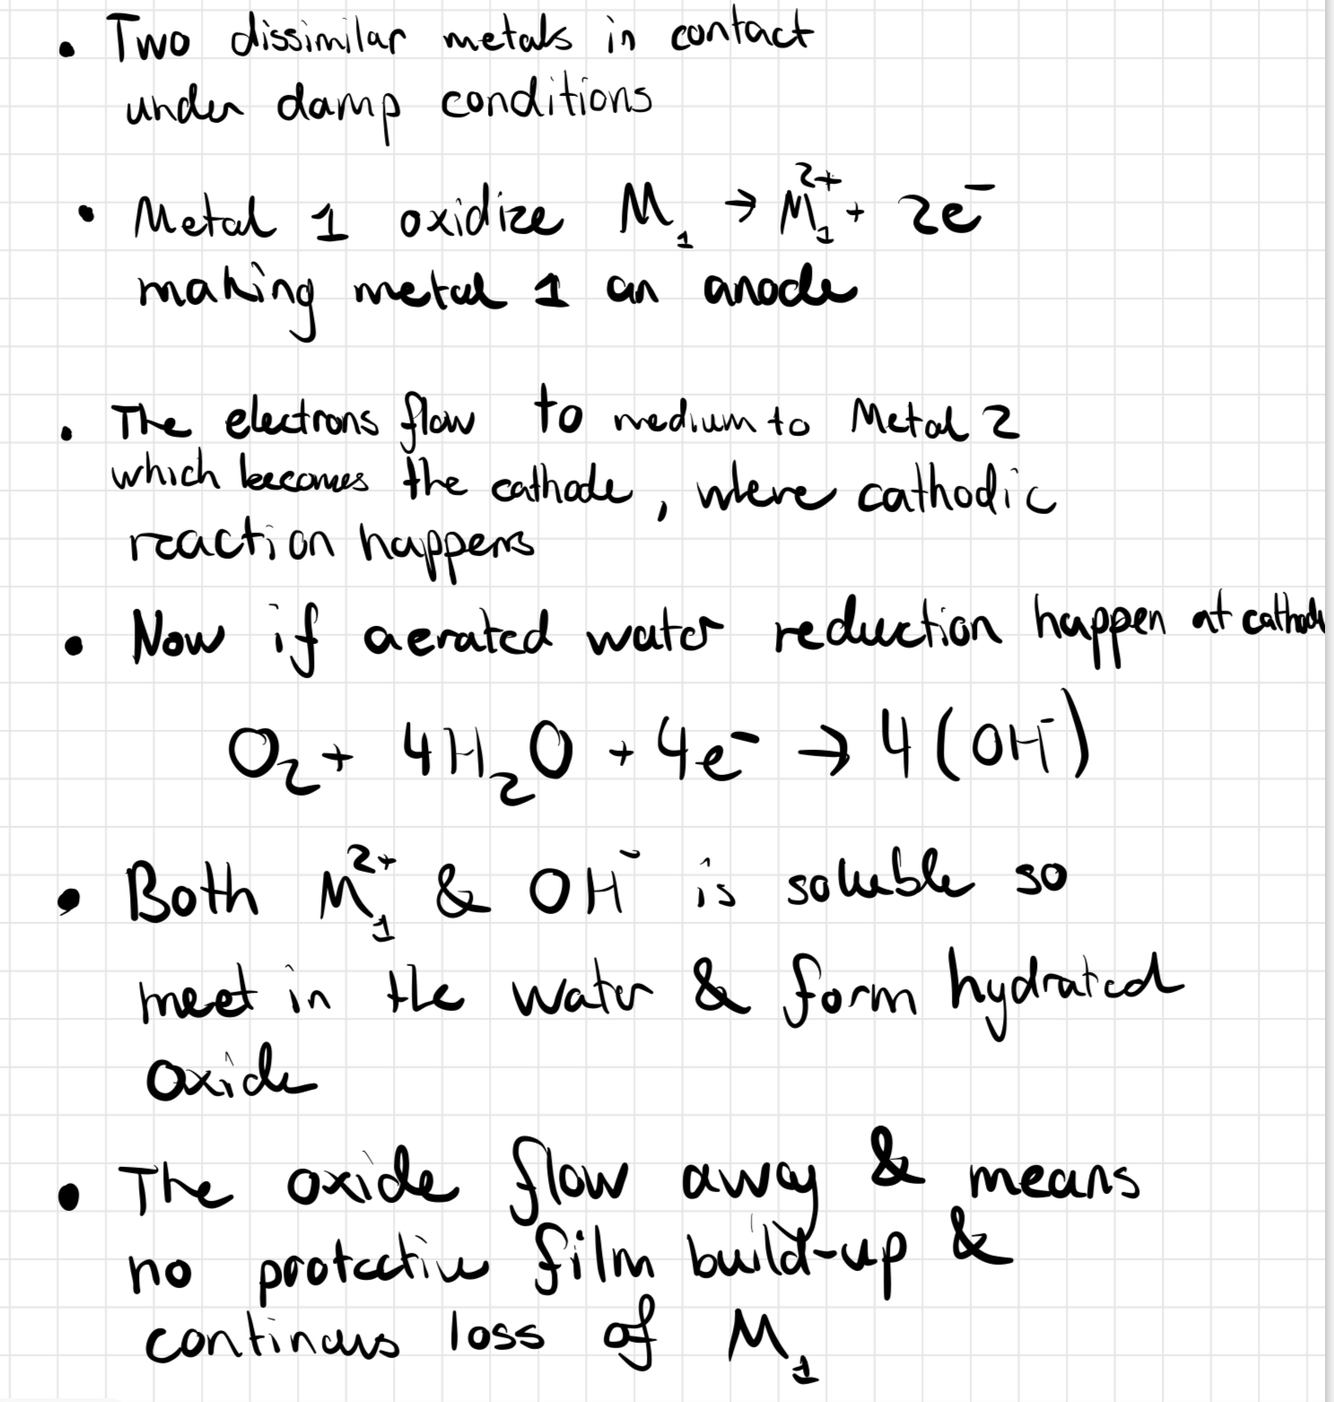 • Two dissimilar metals in contact
under damp conditions
• Metal 1 oxidize M₁ → M₁²⁺ + 2e⁻
making metal 1 an anode
• The electrons flow to medium to Metal 2
which becomes the cathode, where cathodic
reaction happens
• Now if aerated water reduction happen at cathode
O₂ + 4H₂O + 4e⁻ → 4(OH⁻)
• Both M₁²⁺ & OH⁻ is soluble so
meet in the water & form hydrated
oxide
• The oxide flow away & means
no protective film build-up &
continous loss of M₁